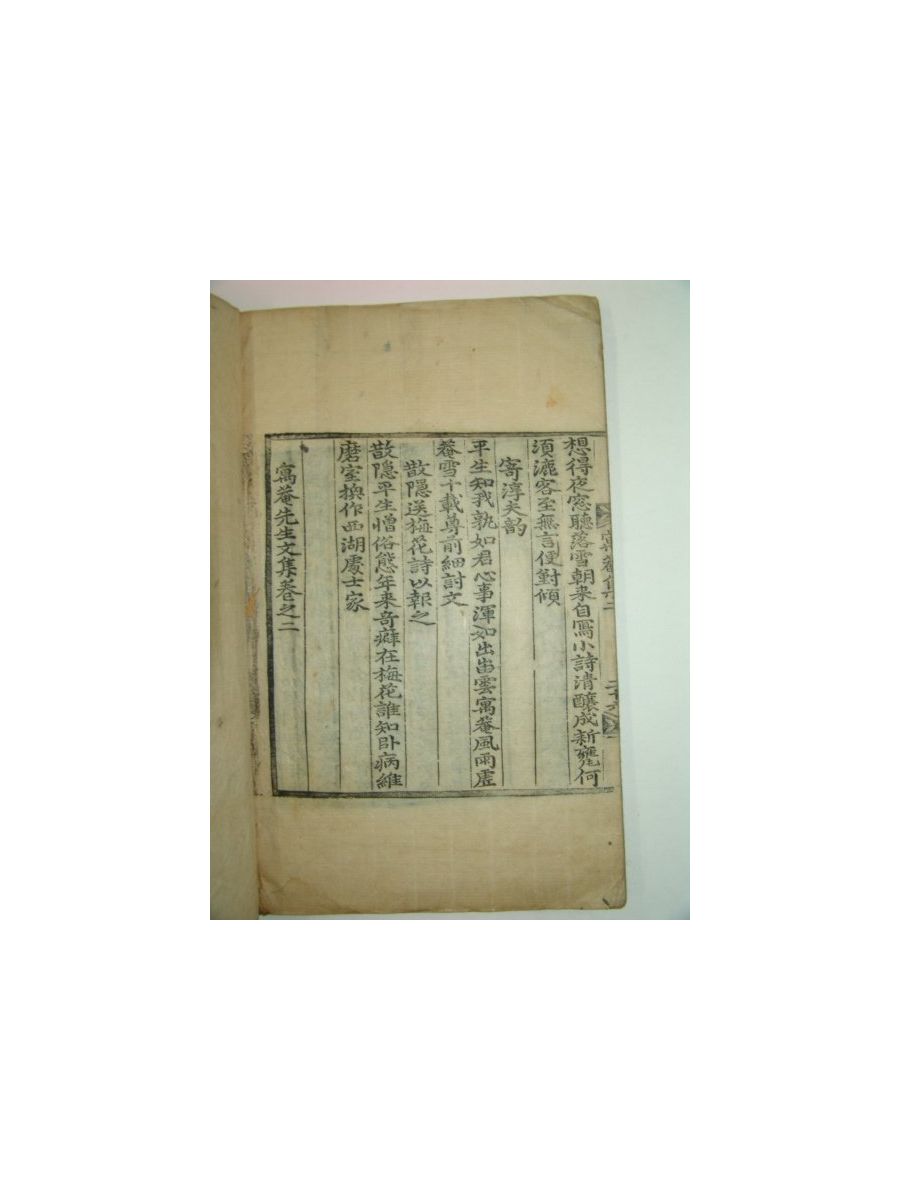 想得夜窓聽落雪朝来自寫小詩清釀成新篘何
須漉客至無言便對傾
寄淳夫韵
平生知我孰如君心事渾如出出雲寓菴風雨虛
菴雪十載尊前細討文
散隱送梅花詩以報之
散隱平生憎俗態年来奇癖在梅花誰知卧病維
磨室換作西湖處士家
寓菴先生文集卷之二
寓菴集二